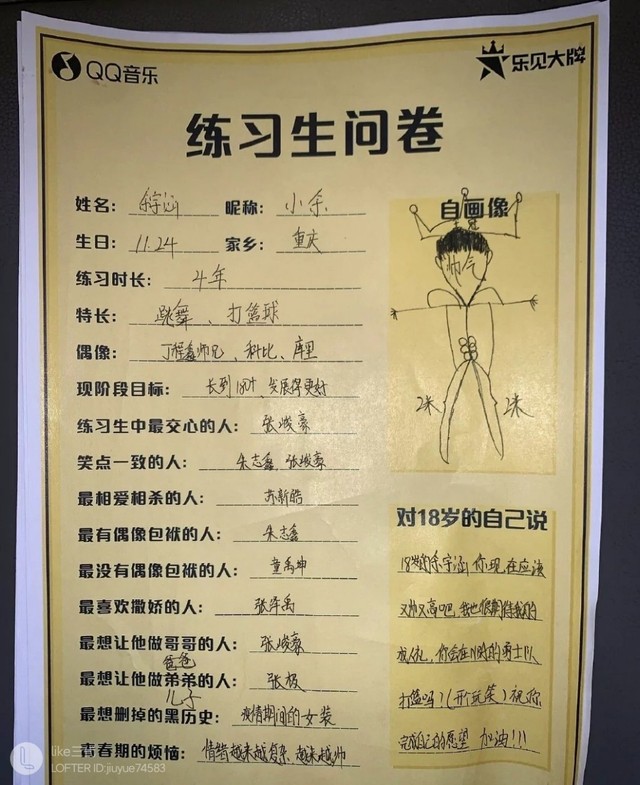 QQ音乐
乐见大牌
练习生问卷
姓名: 余宇涵 昵称: 小余
生日: 11.24 家乡: 重庆
练习时长: 4年
特长: 跳舞、打篮球
偶像: 丁程鑫师兄、科比、库里
现阶段目标: 长到183+、发展得更好
练习生中最交心的人: 张峻豪
笑点一致的人: 朱志鑫、张峻豪
最相爱相杀的人: 苏新皓
最有偶像包袱的人: 朱志鑫
最没有偶像包袱的人: 童禹坤
最喜欢撒娇的人: 张泽禹
最想让他做哥哥的人: 张峻豪
爸爸
最想让他做弟弟的人: 张极
儿子
最想删掉的黑历史: 疫情期间的女装
青春期的烦恼: 情绪越来越复杂, 越来越帅
自画像
帅气
2米
2米
对18岁的自己说
18岁的余宇涵 你现在应该
又帅又高吧, 我也很期待我的
成人礼, 你会在NBA的勇士队
打篮吗?(开玩笑)祝你
完成自己的愿望 加油!!!
like三
LOFTER ID:jiuyue74583